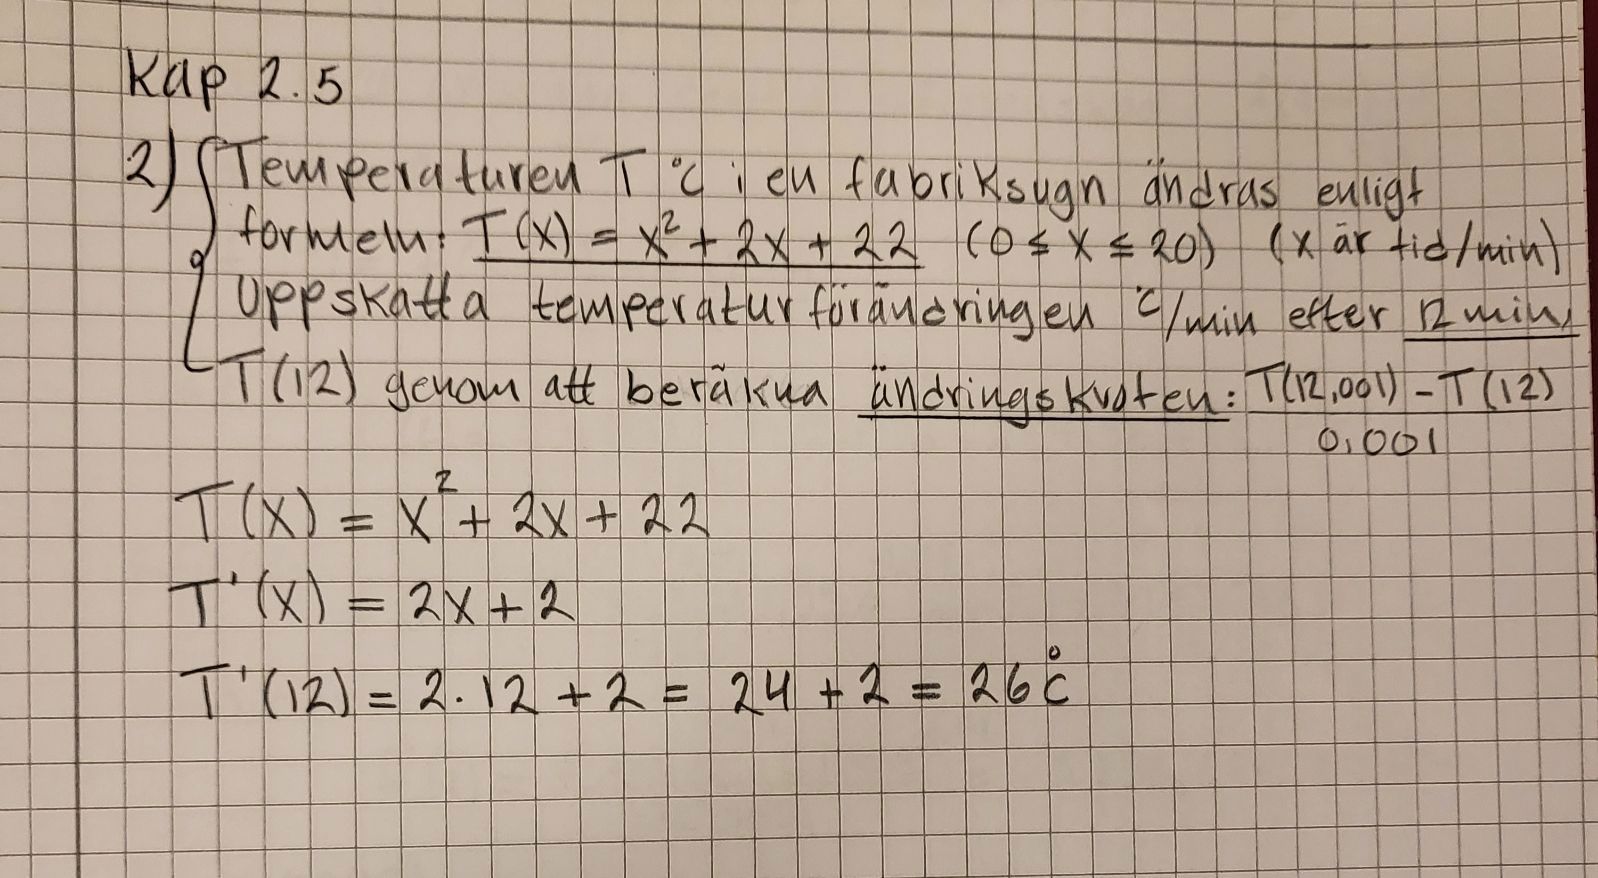 Kap 2.5
2) Temperaturen T °C i en fabriksugn ändras enligt
formeln: T(x) = x² + 2x + 22 (0 ≤ x ≤ 20) (x är tid/min)
Uppskatta temperaturförändringen °C/min efter 12 min,
T(12) genom att beräkna ändringskvoten: T(12,001) - T(12)
0,001
T(x) = x² + 2x + 22
T'(x) = 2x + 2
T'(12) = 2·12 + 2 = 24 + 2 = 26 °C